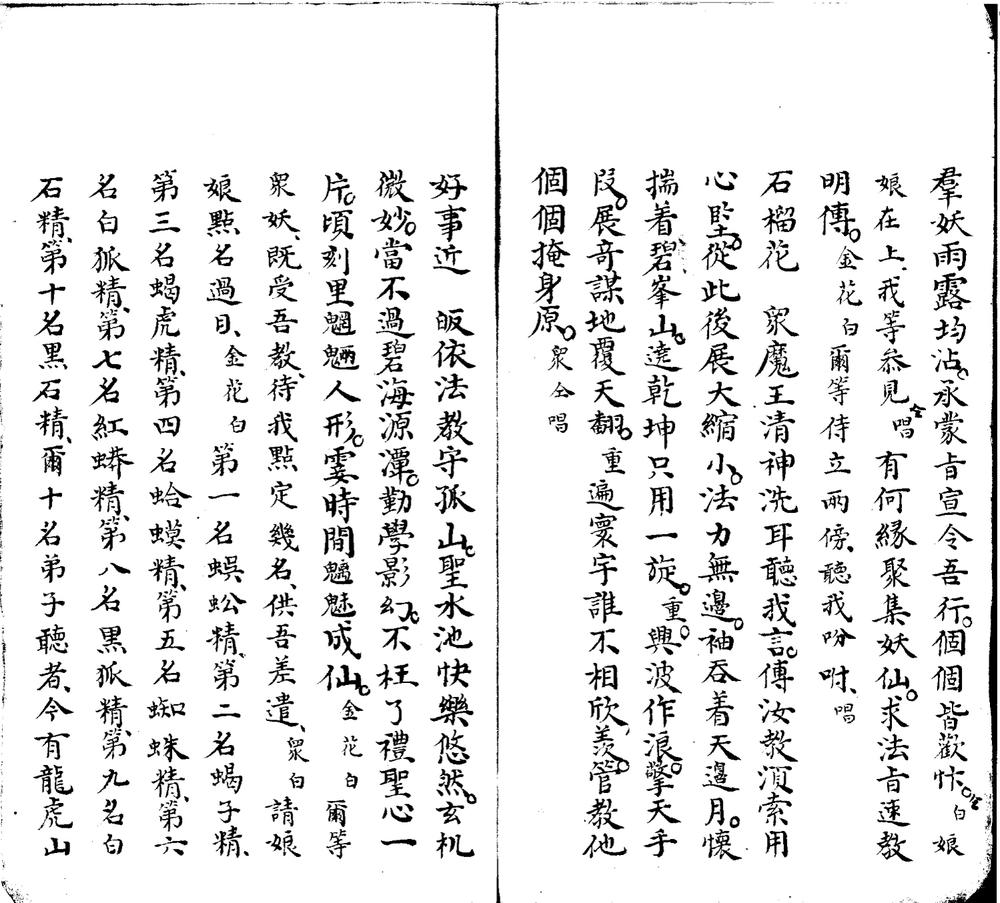 羣妖雨露均沾承蒙旨宣令吾行個個皆歡忭白娘
娘在上我等叅見仝唱有何緣聚集妖仙求法旨速教
明傳金花白爾等侍立兩傍聽我吩咐唱
石榴花　衆魔王清神洗耳聽我言傳汝教湏索用
心堅從此後展大縮小法力無邊袖吞着天邊月懷
揣着碧峯山遶乾坤只用一旋重興波作浪擎天手
段展奇謀地覆天翻重遍寰宇誰不相欣羨管教他
個個掩身原衆仝唱
好事近　皈依法教守孤山聖水池快樂悠然玄机
微妙當不過碧海源潭勤學影幻不枉了禮聖心一
片頃刻里魍魎人形霎時間魑魅成仙金花白爾等
衆妖既受吾教待我點定幾名供吾差遣衆白請娘
娘點名過目金花白第一名蜈蚣精第二名蝎子精
第三名蝎虎精第四名蛤蟆精第五名蜘蛛精第六
名白狐精第七名紅蟒精第八名黑狐精第九名白
石精第十名黑石精爾十名弟子聽者今有龍虎山